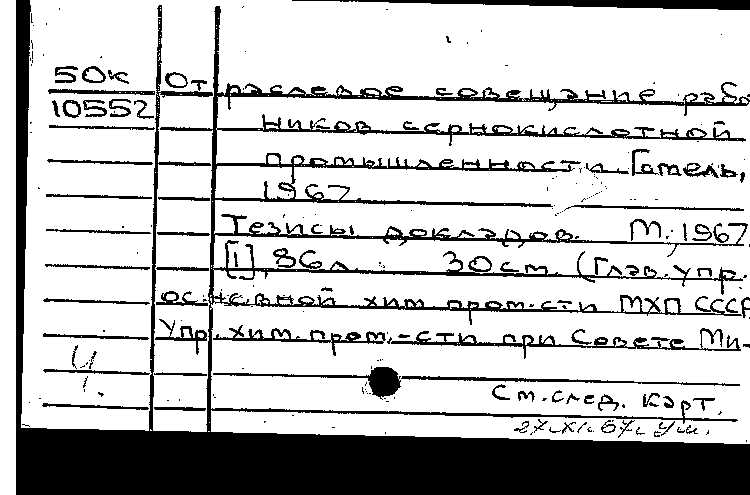 50к
10552
Отраслевое совещание рабо
ников сернокислотной
промышленности. Гомель,
1967.
Тезисы докладов. М., 1967.
[1], 86 л. 30 см. (Глав. упр.
основной хим. пром-сти МХП СССР
Упр. хим. пром-сти при Совете Ми-
Ч.
См. след. карт.
27.XI.67г.